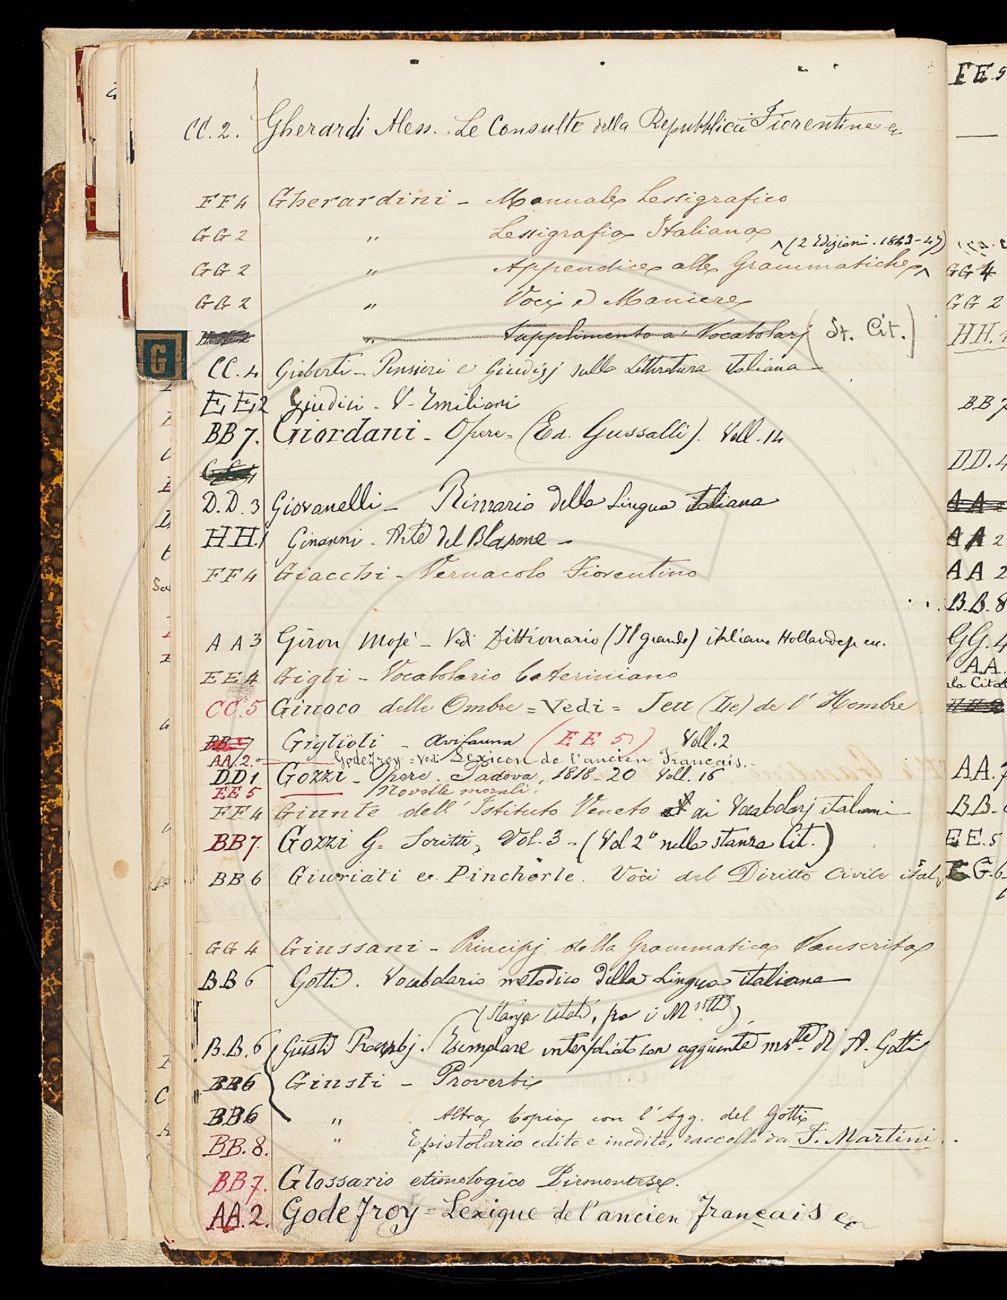 CC. 2. Gherardi Aless. Le Consulte della Repubblica Fiorentina
FF4 Gherardini - Manuale Lessigrafico
GG2 " Lessigrafia Italiana
(2 Edizioni. 1843-47)
GG2 " Appendice alle Grammatiche
GG2 " Voci e Maniere
" Supplimento a' Vocabolarj (St. Cit.)
G
CC. 4 Gioberti - Pensieri e Giudizj sulla Letteratura italiana -
EE2 Giudici - V. Emiliani
BB7. Giordani - Opere = (Ed. Gussalli). Voll. 14
D.D. 3 Giovanelli - Rimario della Lingua italiana
HH.1 Ginanni. Arte del Blasone -
FF4 Giacchi - Vernacolo Fiorentino
AA3 Giron Mosè - Vedi Dittionario (Il grande) italiano Hollandese
EE4 Gigli - Vocabolario Cateriniano
CC.5 Giuoco delle Ombre = Vedi = Jeu (Le) de l'Hombre
BB.7 Giglioli - Avifauna (EE5) Voll. 2
AA.2. Godefroy = Vedi Lexicon de l'ancien Français.
DD1 Gozzi - Opere. Padova, 1818-20 Voll. 16
EE5 Novelle morali.
FF4 Giunte dell'Istituto Veneto ai Vocabolarj italiani
BB7. Gozzi G. Scritti, Vol. 3 - (Vol 2° nella stanza Cit.)
BB6 Giuriati e Pincherle. Voci del Diritto Civile ital.
GG4 Giussani - Principj della Grammatica Sanscrita
BB6 Gotti. Vocabolario metodico della Lingua italiana
(Stanza Citati, fra i Mstti)
B.B.6 Giusti Proverbj. Esemplare interfoliato con aggiunte mstte di A. Gotti
BB6 Giusti - Proverbi
BB6 " Altra Copia con l'Agg. del Gotti
BB.8. " Epistolario edito e inedito, raccolto da F. Martini.
BB7. Glossario etimologico Piemontese.
AA.2. Godefroy = Lexique de l'ancien Français
EE.5
GG4
GG2
HH.
BB7
DD.4
AA2
AA2
AA2
B.B.8
GG.4
AA.
AA.7
BB.
EE.5